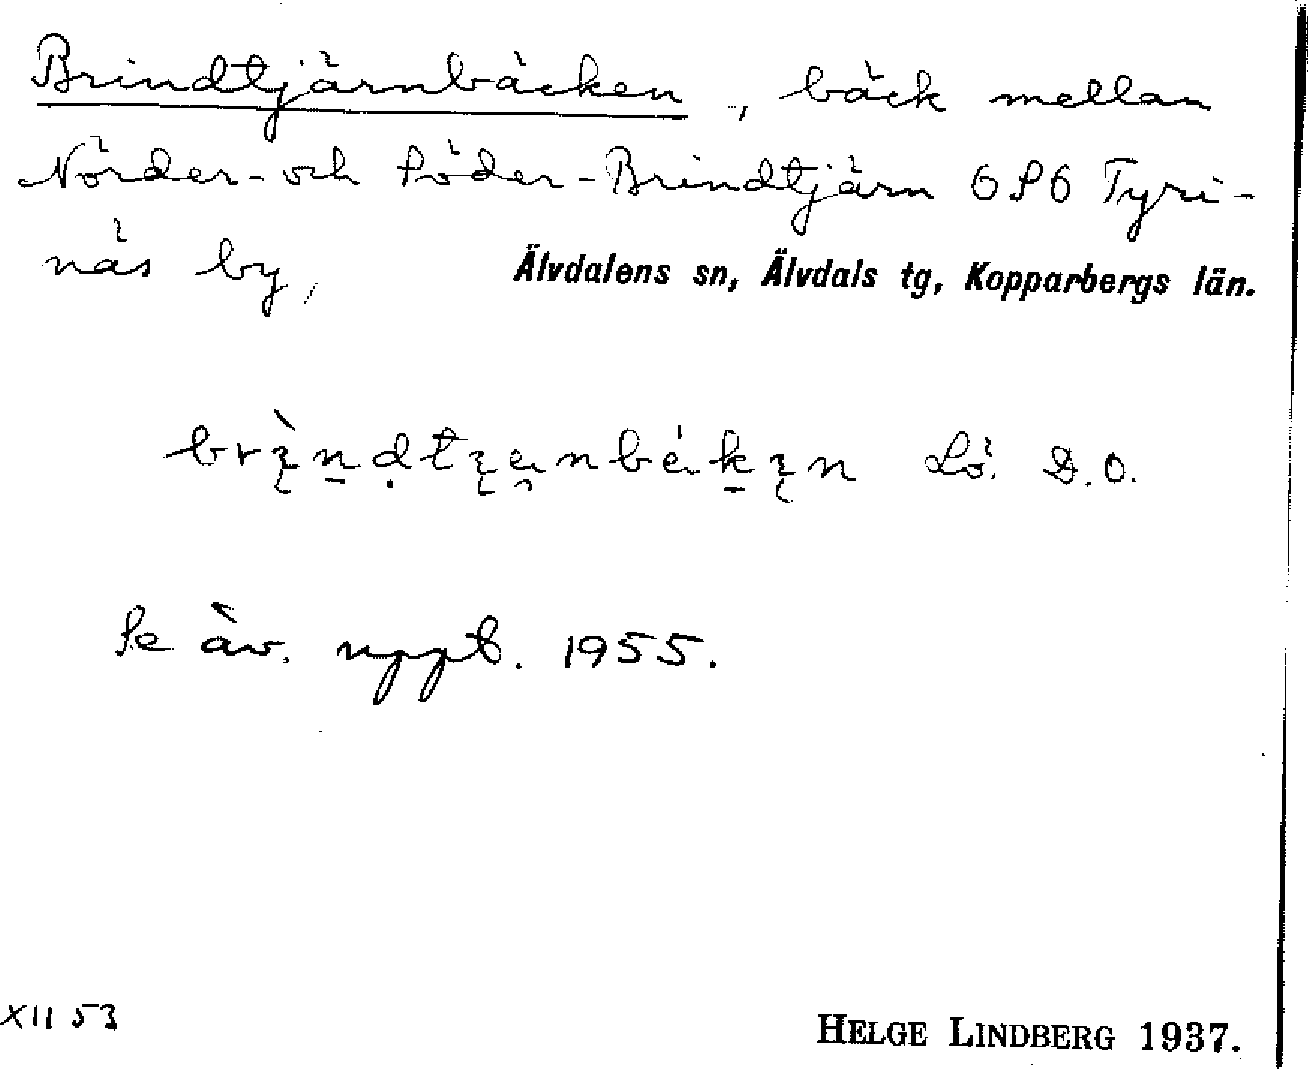 Brindtjärnbäcken, bäck mellan
Nörder- och Söder-Brindtjärn 6 S 6 Tyri-
näs by, Älvdalens sn, Älvdals tg, Kopparbergs län.
Lö. D.O.
Se äv. uppt. 1955.
XII 53
HELGE LINDBERG 1937.